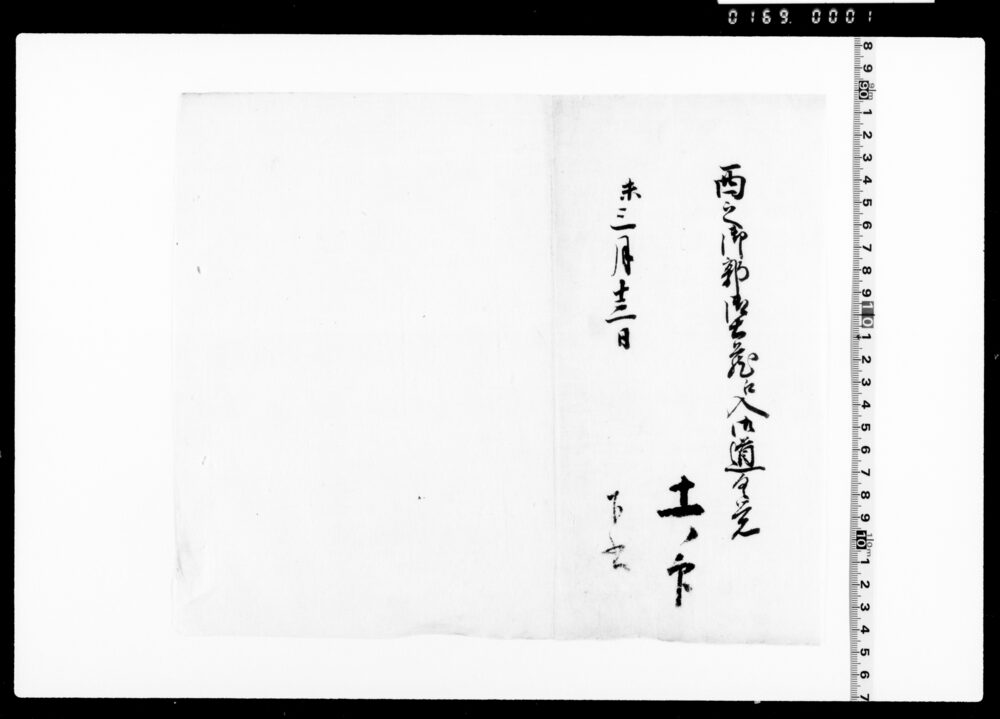 0169. 0001
西之御郭御土蔵江入御道具覚
土ノ印
未三月十三日
下書
8 9 90 1 2 3 4 5 6 7 8 9 10 1 2 3 4 5 6 7 8 9 10 1 2 3 4 5 6 7